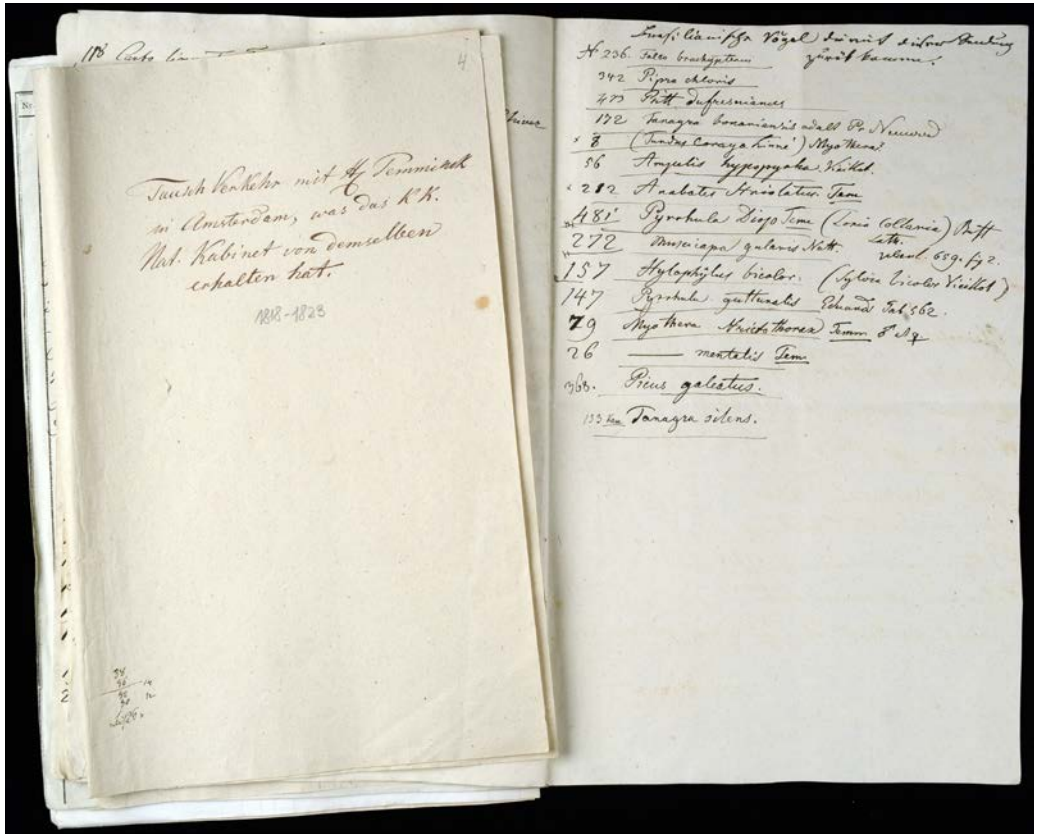 118
4
Tausch Verkehr mit H Temminck
in Amsterdam, was das K K.
Nat. Kabinet von demselben
erhalten hat.
1818-1823
Brasilianische Vögel die mit dieser Sendung
zurük kommen.
N 236. Falco brachypterus
342 Pipra chloris
Psitt Dufresnianus
172 Tanagra bonariensis adult Pr. Neuwied
8 (Turdus Coraya Linné) Myothera?
56 Ampelis hypopyrha Vieillot.
212 Anabates striolatus. Tem
481 Pyrrhula Tem (Loxia Collaria) Buff
Lath.
272 Muscicapa gularis Natt. 659. fg 2.
157 Hylophylus bicolor. (Sylvia bicolor Vieillot)
147 Pyrrhula gutturalis Edwards Tab 562.
79 Myothera strictothorax Temm ♂
26 —— mentalis Tem
363. Picus galeatus.
133 Tanagra silens.